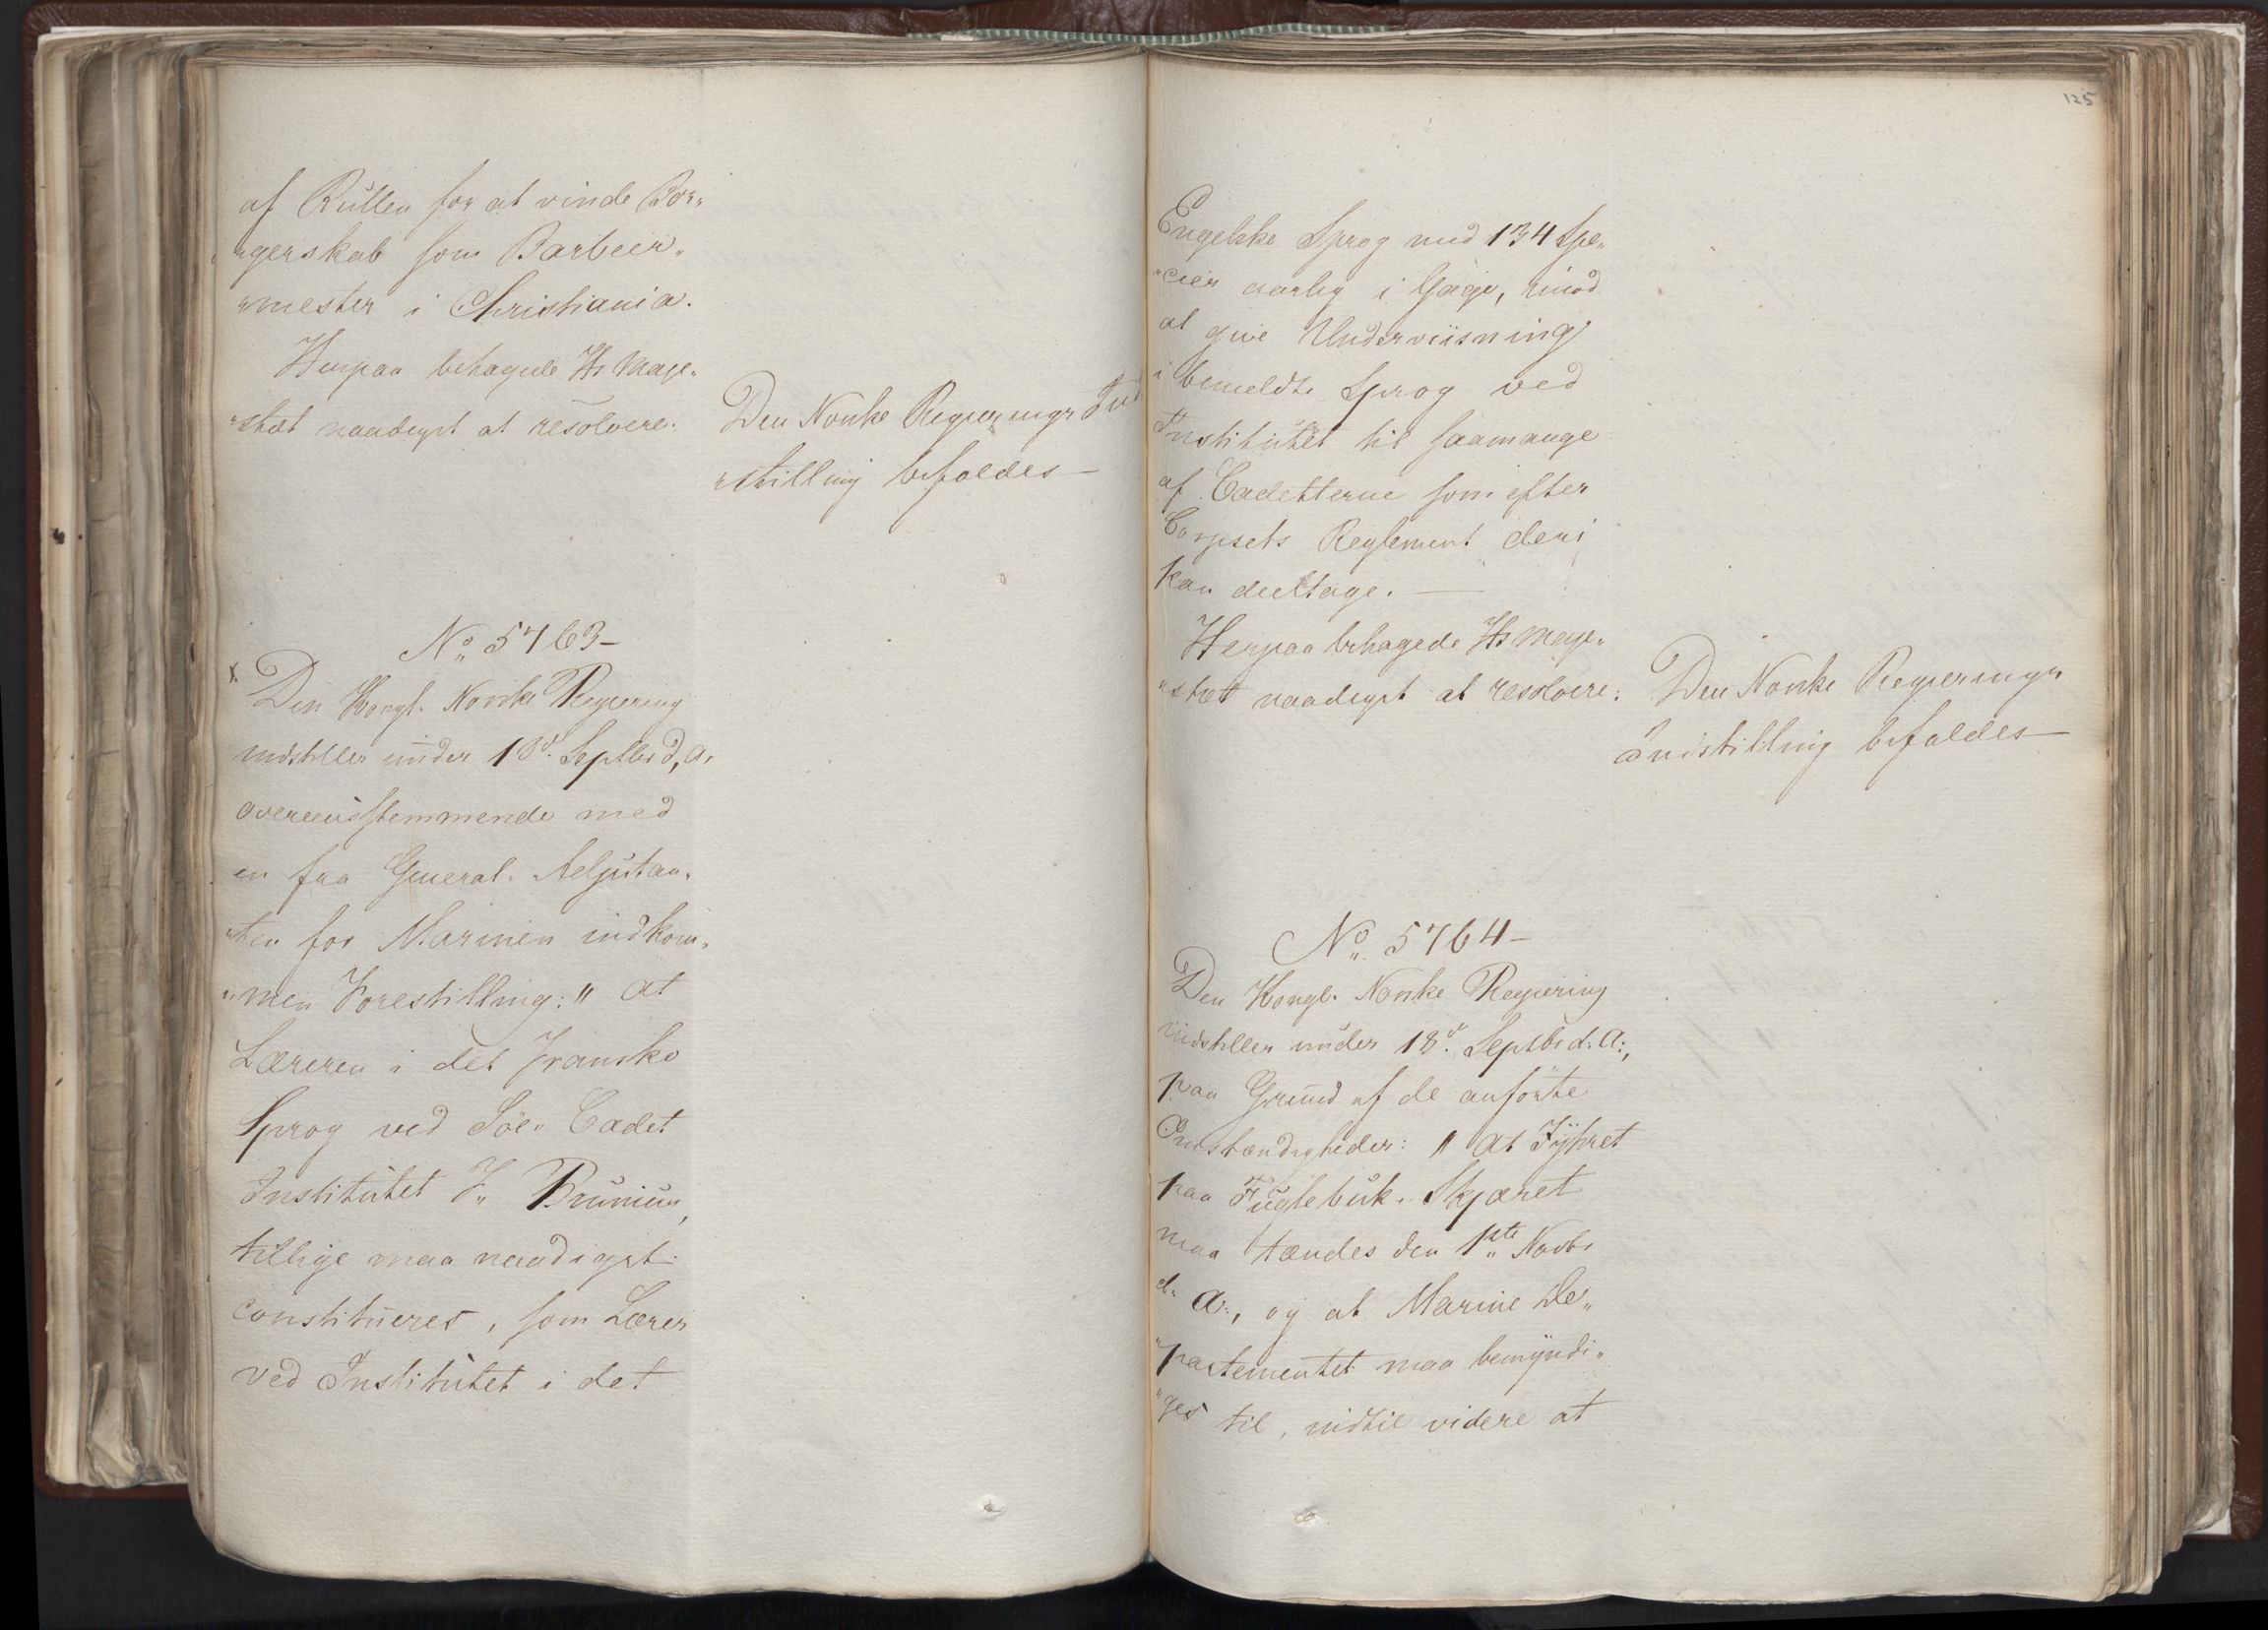 af Rullen for at vinde Bor„
„gerskab som Barbeer„
„mester i Christiania.
Herpaa behagede Hs Maje„
„stæt naadigst at resolvere:
Den Norske Regjerings Ind
„stilling bifaldes —
No 5763 –
x
Den Kongl. Norske Regjering
indstiller under 18d. Septbr d, a,
overeensstemmende med
en fra General„ Adjutan„
„ten for Marinen indkom„
„men Forestilling: „ at
Læreren i det Franske
Sprog ved Söe„ Cadet
Institutet F„ Brunius,
tillige maa naadigst
constitueres, som Lærer
ved Institutet i det
125
Engelske Sprog med 134 Spe„
„cier aarlig i Gage, imod
at give Underviisning
i bemeldte Sprog ved
Institutet til saamange
af Cadetterne som efter
Corpsets Reglement deri
kan deeltage. —
Herpaa behagede Hs Maje„
„stæt naadigst at resolvere:
Den Norske Regjerings
Indstilling bifaldes —
No. 5764 –
Den Kongl. Norske Regjering
indstiller under 18d. Septbr d: a:,
paa Grund af de anförte
Omstændigheder: „ at Fyhret
paa Fuglehuk„ Skjæret
maa tændes den 1ste Novbr
d. a:, og at Marine De„
„partementet maa bemyndi„
„ges til, indtil videre at